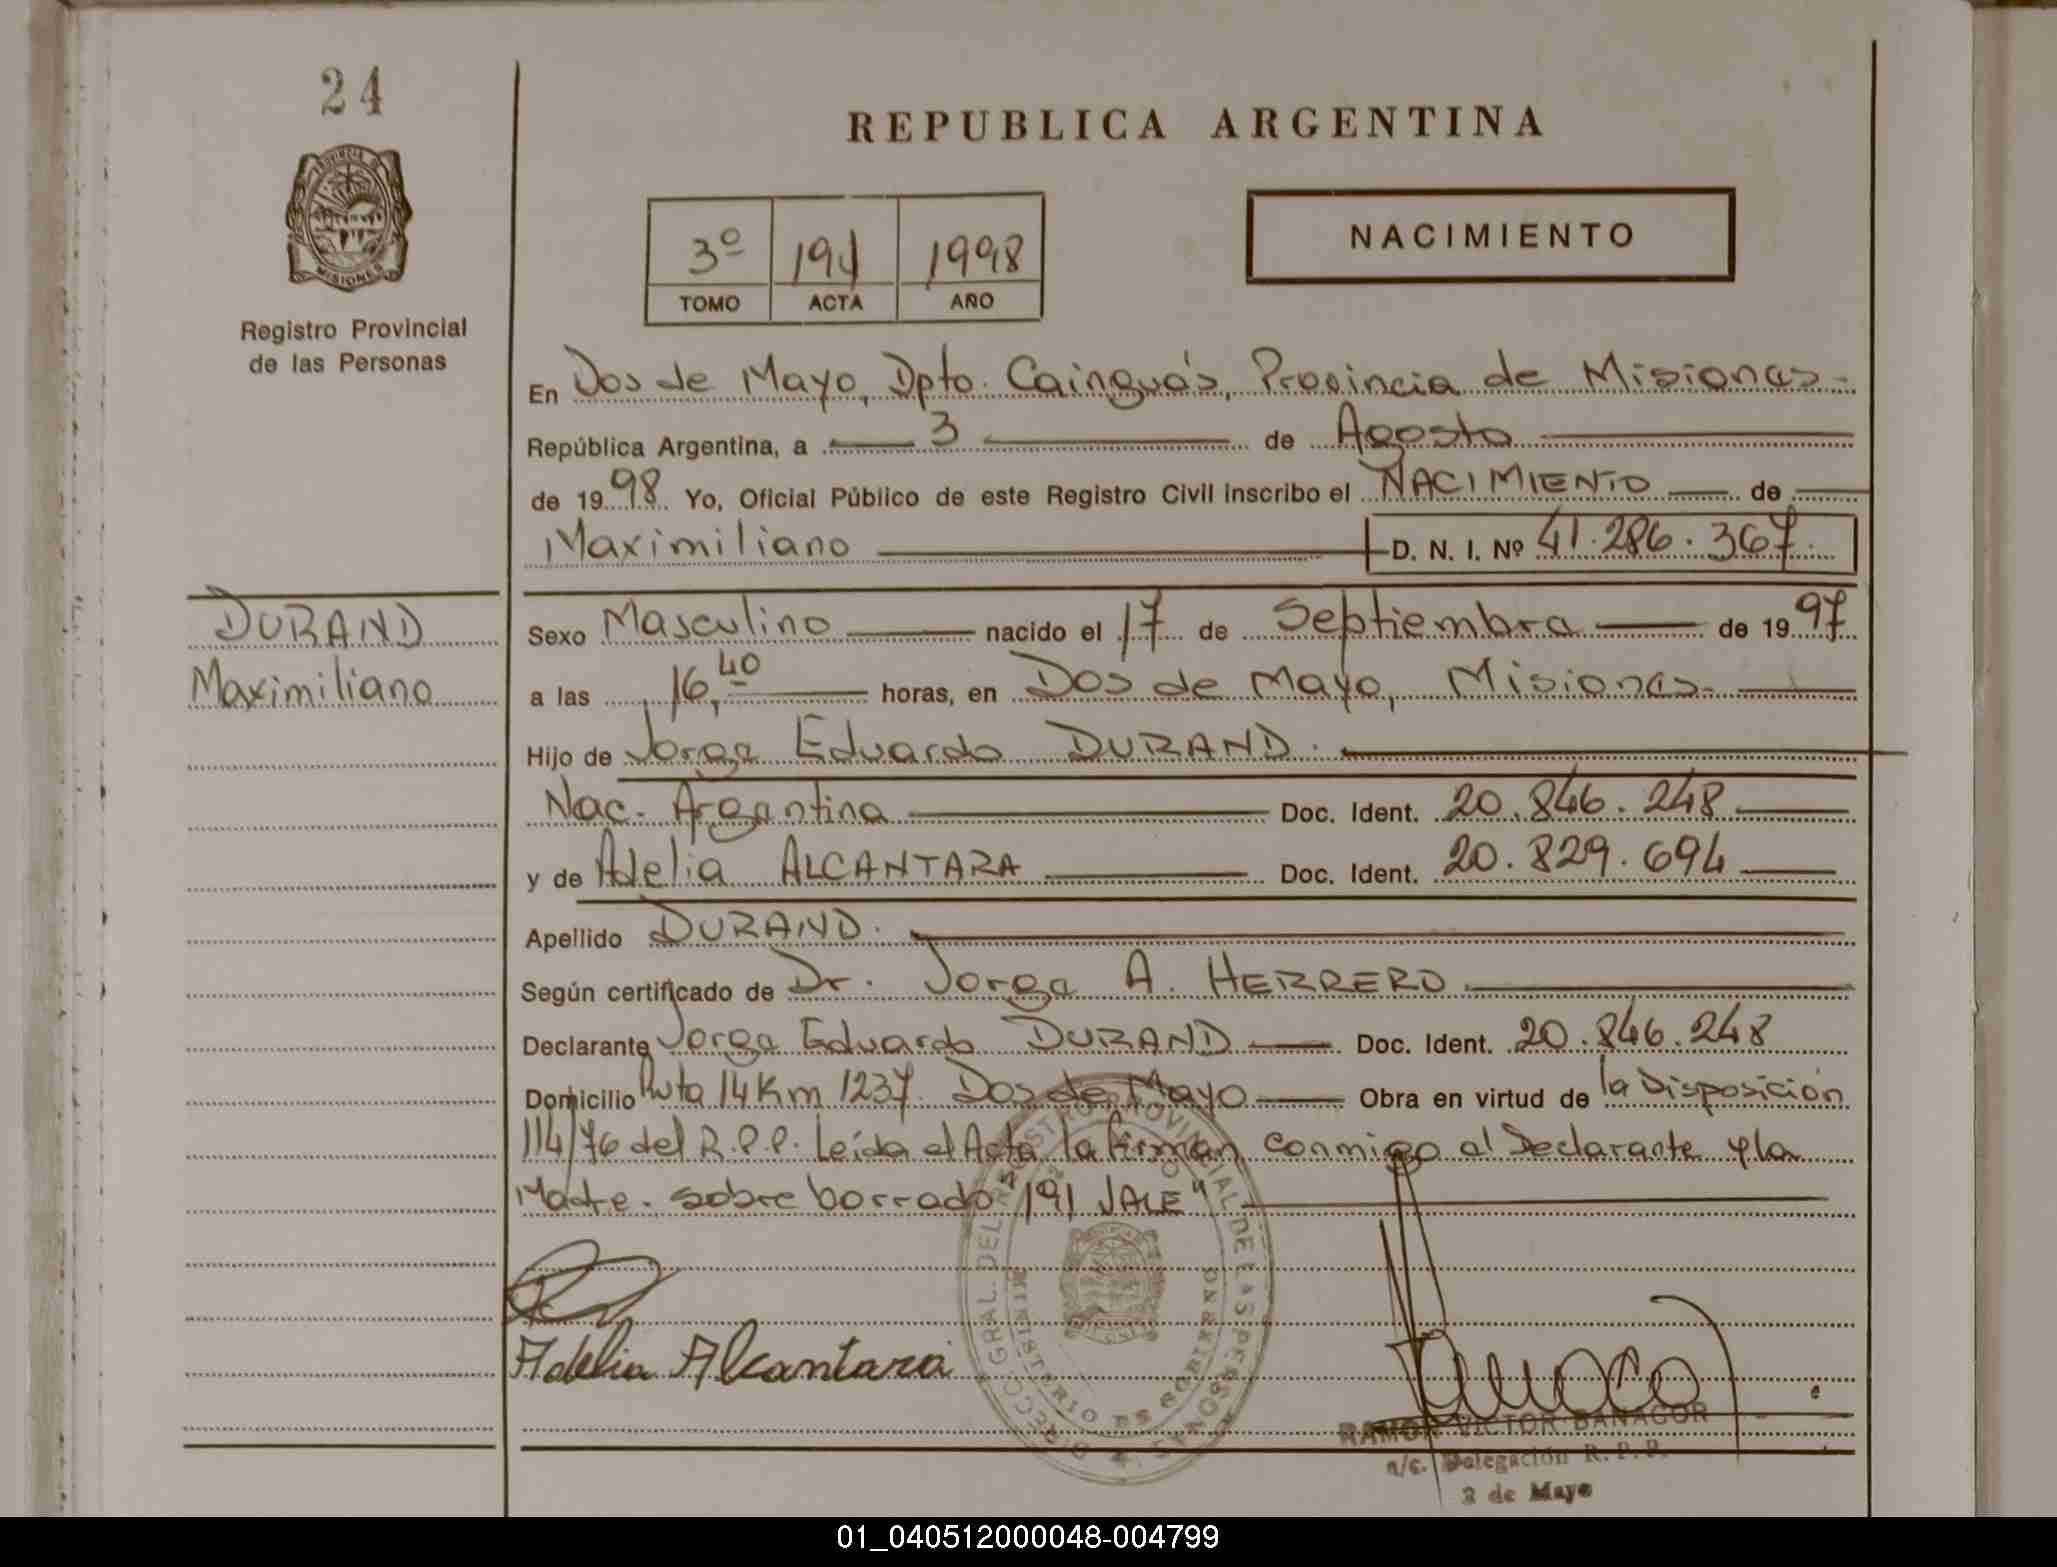 24
REPUBLICA ARGENTINA
PROVINCIA DE
MISIONES
Registro Provincial
de las Personas
3º 191 1998
TOMO ACTA AÑO
NACIMIENTO
En Dos de Mayo, Dpto. Cainguás, Provincia de Misiones
República Argentina, a 3 de Agosto
de 1998 Yo, Oficial Público de este Registro Civil inscribo el NACIMIENTO de
Maximiliano D. N. I. Nº 41.286.367.
DURAND
Maximiliano
Sexo Masculino nacido el 17 de Septiembre de 1997
a las 16,40 horas, en Dos de Mayo, Misiones
Hijo de Jorge Eduardo DURAND.
Nac. Argentina Doc. Ident. 20.846.248
y de Adelia ALCANTARA Doc. Ident. 20.829.694
Apellido DURAND.
Según certificado de Dr. Jorge A. HERRERO
Declarante Jorge Eduardo DURAND Doc. Ident. 20.846.248
Domicilio Ruta 14 Km 1237. Dos de Mayo Obra en virtud de la Disposición
114/76 del R.P.P. Leída el Acta la firman conmigo el Declarante y la
Madre. sobre borrado 191 VALE"
Adelia Alcantara
DIRECC. GRAL. DEL REGISTRO PROVINCIAL DE LAS PERSONAS
MINISTERIO DE GOBIERNO
RAMON VICTOR BANACOR
a/c. Delegación R. P. P.
2 de Mayo
01_040512000048-004799